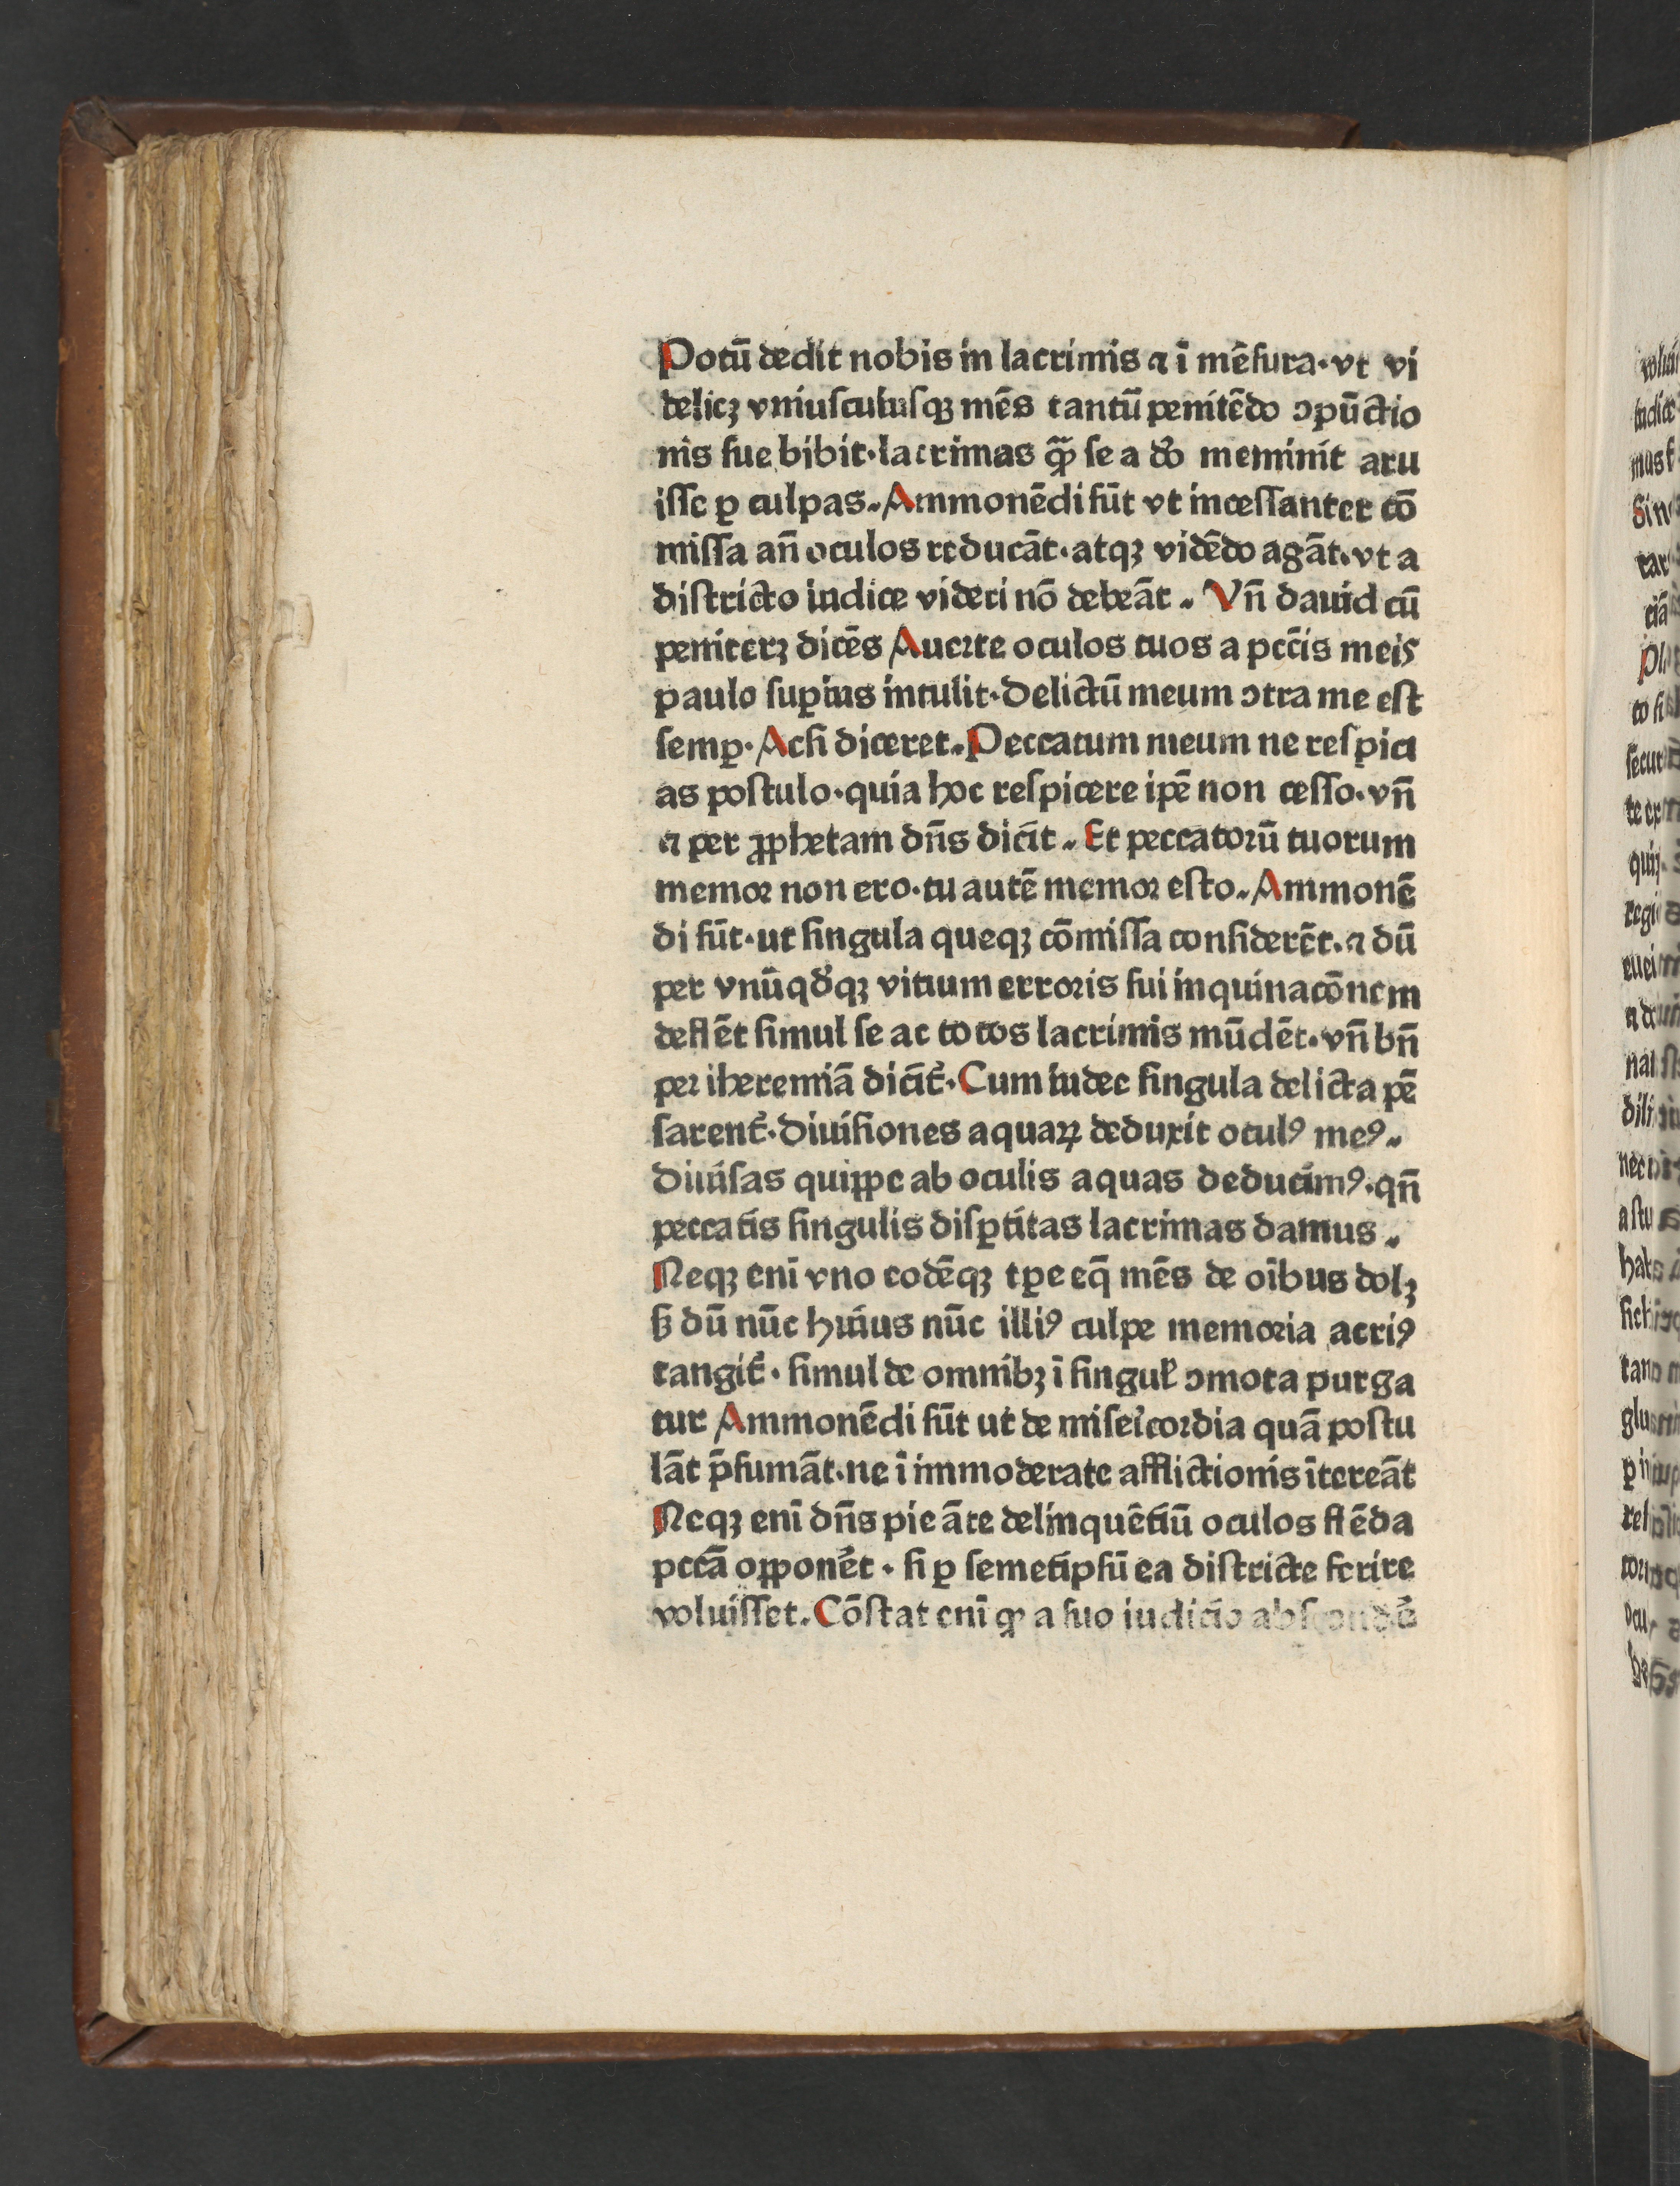 Potū dedit nobis in lacrimis ⁊ ī mēſura·vt vi
delicꝫ vniuſcuiuſqꝫ mēs tantū penitēdo ꝯpūctio
nis ſue bibit·lacrimas qᷓꝫ ſe a do̅ meminit aru
iſſe ꝑ culpas.Ammonēdi ſūt vt inceſſanter cō
miſſa an̄ oculos reducāt·atqꝫ vidēdo agāt·vt a
diſtricto iudice videri nō debeāt. Vn̄ dauid cū
peniterꝫ dicēs Auerte oculos tuos a pcc̄is meis
paulo ſuꝑius intulit·Delictū meum ꝯtra me eſt
ſemꝑ·Acſi diceret.Peccatum meum ne reſpici
as poſtulo·quia hoc reſpicere ip̄e non ceſſo·vn̄
⁊ per ꝓphetam dn̄s dicit. Et peccatorū tuorum
memor non ero·tu autē memor eſto.Ammonē
di ſūt·ut ſingula queqꝫ cōmiſſa conſiderēt·⁊ dū
per vnūqd̓qꝫ vitium erroris ſui inquinacōnem
deflēt ſimul ſe ac totos lacrimis mūdēt·vn̄ bn̄
per iheremiā dicit᷑·Cum iudee ſingula delicta pē
ſarent᷑·Diuiſiones aquaꝝ deduxit oculꝰ meꝰ.
Diuiſas quippe ab oculis aquas deducimꝰ·qn̄
peccatis ſingulis diſꝑtitas lacrimas damus.
Neqꝫ enī vno eodēqꝫ tꝑe eq̄ mēs de oībus dolꝫ
ſꝫ dū nūc huius nūc illiꝰ culpe memoria acriꝰ
tangit᷑· ſimul de omnibꝫ ī ſingul̓ ꝯmota purga
tur Ammonēdi ſūt ut de miſeīcordia quā poſtu
lāt p̄ſumāt·ne ī immoderate afflictionis ītereāt
Neqꝫ enī dn̄s pie āte delinquētiū oculos flēda
pccā opponēt · ſi ꝑ ſemetipſū ea diſtricte ferire
voluiſſet.Cōſtat enī ꝙ a ſuo iudicio abſcondē